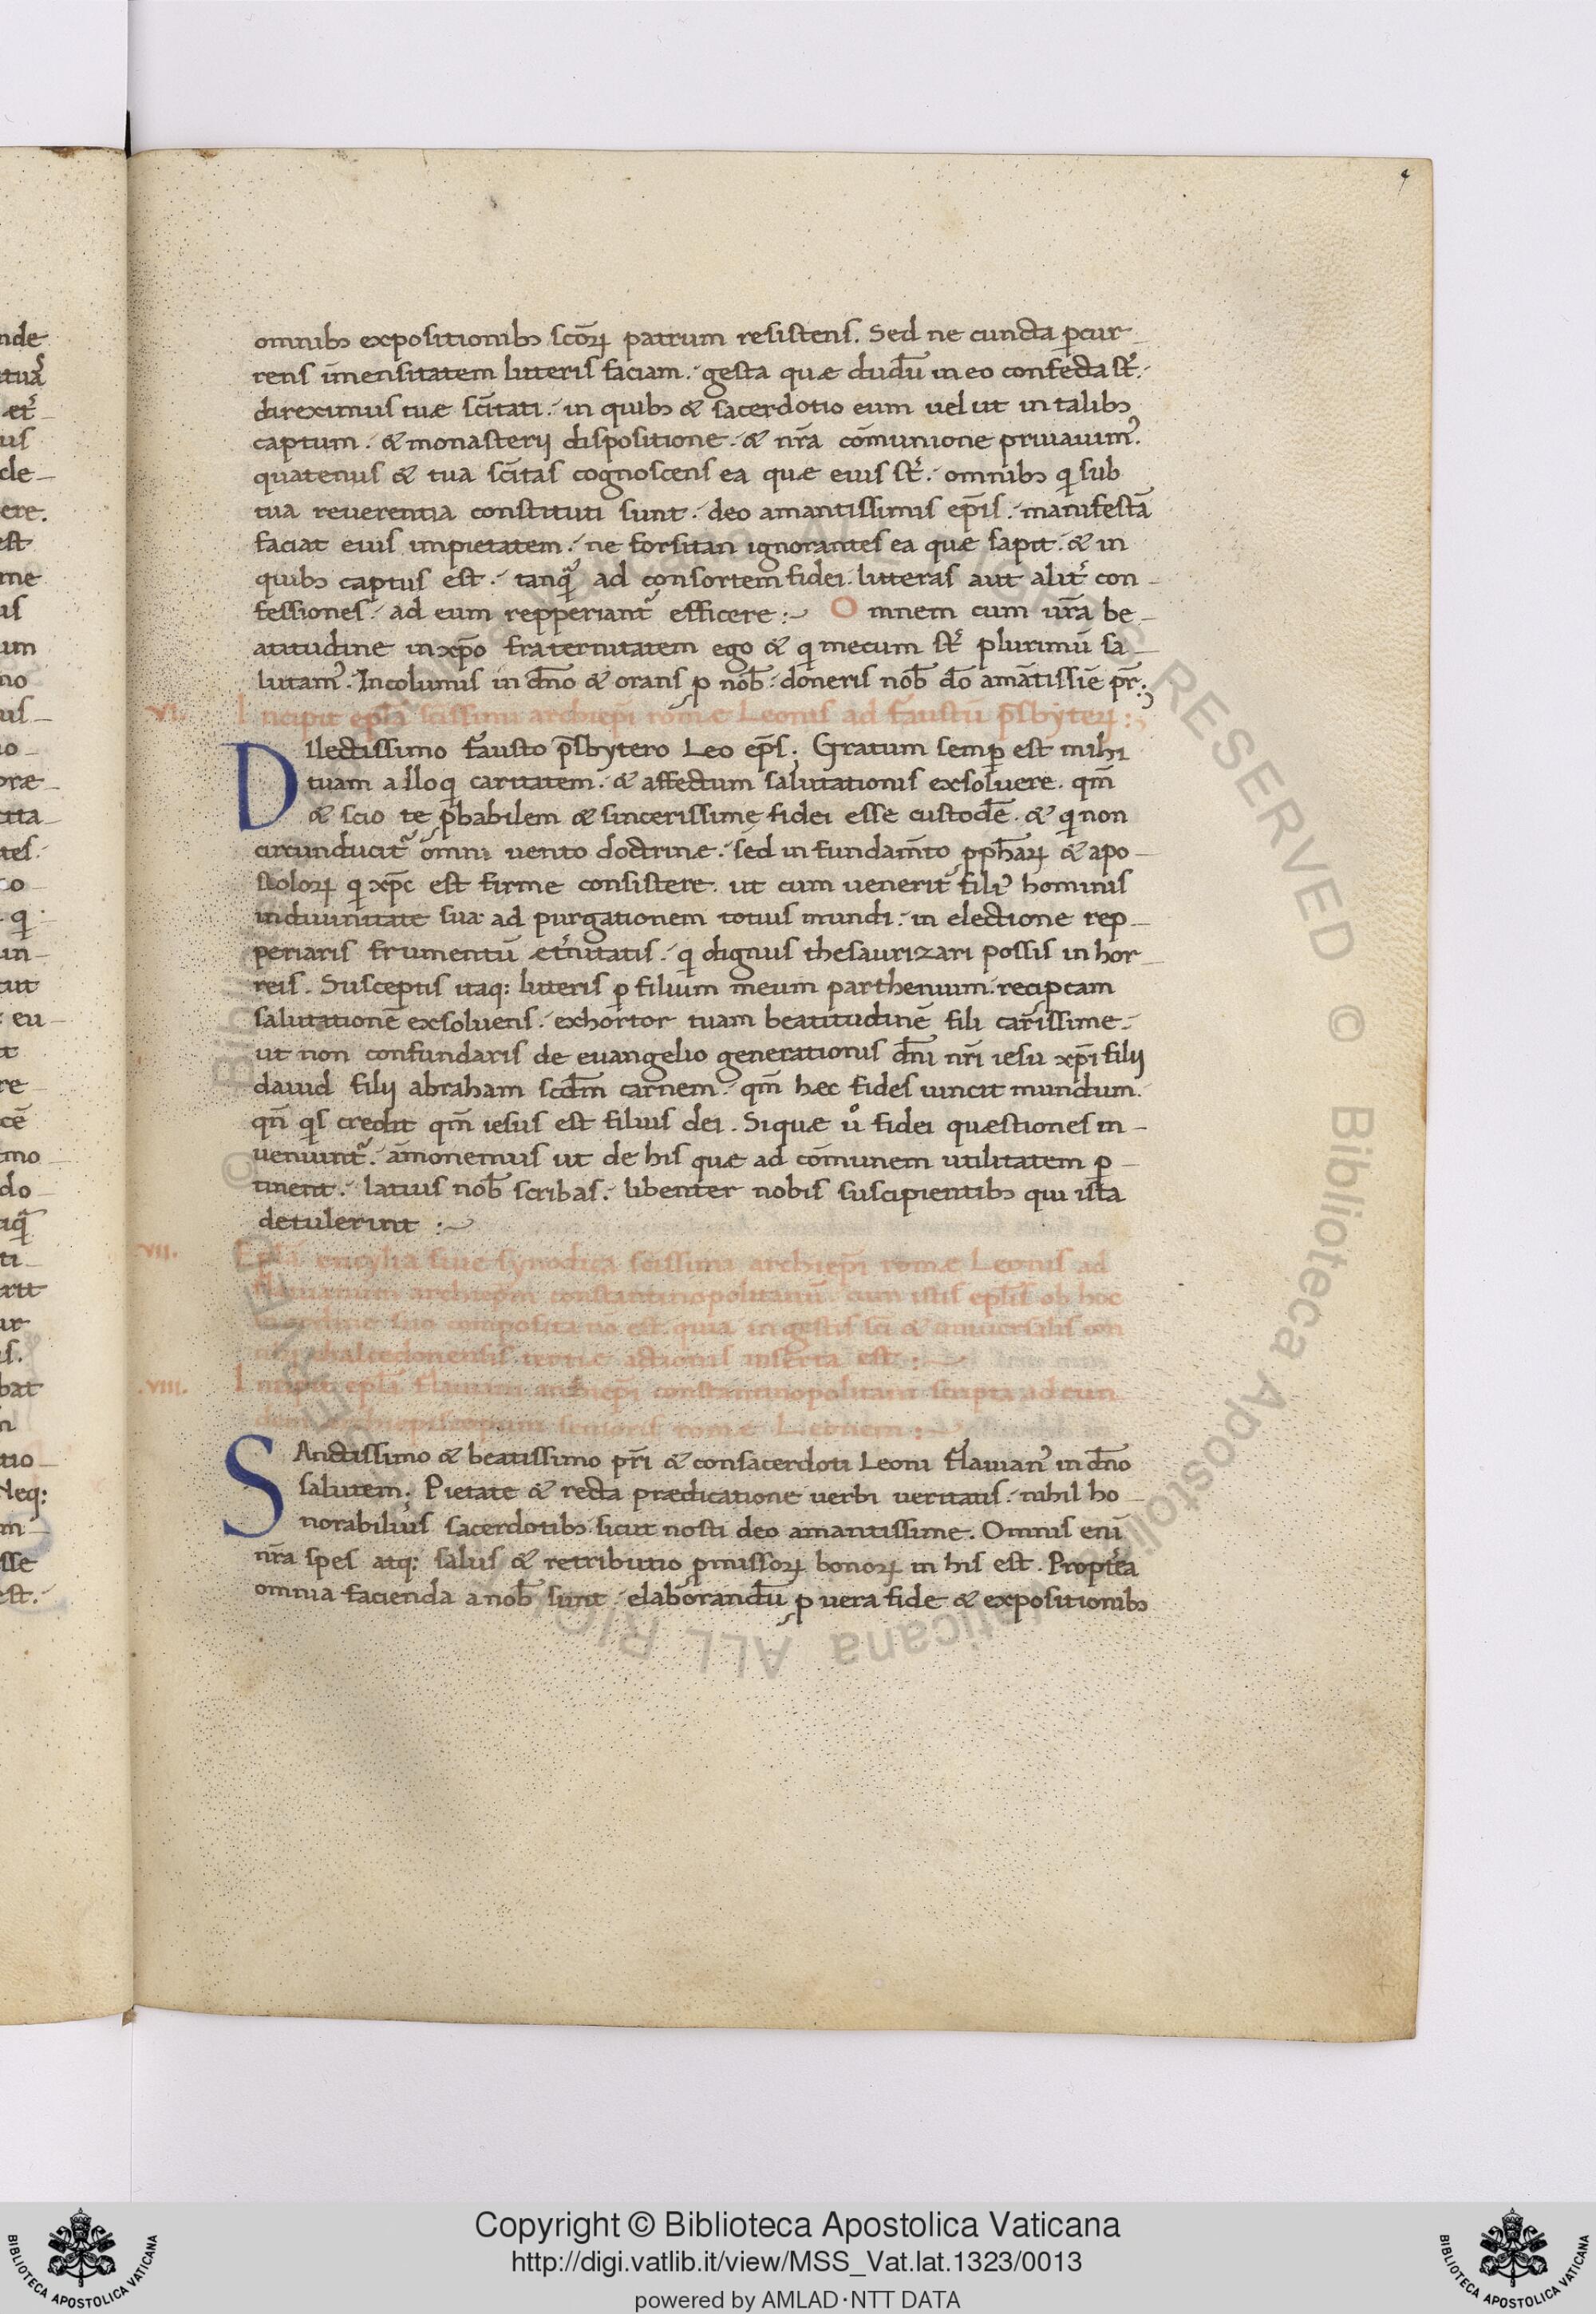 omnibꝫ expositionibꝫ scōꝝ patrum resistens. Sed ne cuncta ꝑcur-
rens īmensitatem litteris faciam. gesta quæ dudū in eo confecta st̄.
direximus tuæ sc̄itati. in quibꝫ & sacerdotio eum uel ut in talibꝫ
captum. & monasterij dispositione. & nr̄a cōmunione priuauim᾽.
quatenus & tua sc̄itas cognoscens ea quæ eius st̄. omnibꝫ q sub
tua reuerentia constituti sunt. deo amantissimis ep̄is. manifestā
faciat eius impietatem. ne forsitan ignorantes ea quæ sapit. & in
quibꝫ captus est. tanqȝ ad consortem fidei. litteras aut alit᾽ con-
fessiones. ad eum repperiant᾽ efficere:~ Omnem cum ur̄a be-
atitudine in xp̄o fraternitatem ego & q mecum st̄ plurimū sa-
lutam᾽. Incolumis in dn̄o & orans ꝓ nob̄. doneris nob̄ dō amātissīe pr̄;
.VI. Incipit epl̄a sc̄issimi archiep̄i romæ Leonis ad faustū p̄sbyteꝝ:;
Dilectissimo fausto p̄sbytero Leo ep̄s; Gratum semꝑ est mihi
tuam alloq caritatem. & affectum salutationis exsoluere. qm̄
& scio te ꝓbabilem & sincerissime fidei esse custodē. & q non
circunducit᾽ omni uento doctrinæ. sed in fundam̄to ꝓph̄aꝝ & apo-
stoloꝝ q xp̄c est firme consistere. ut cum uenerit fili᾽ hominis
in diuinitate sua ad purgationem totius mundi. in electione rep-
periaris frumentū æt᾽nitatis. q dignus thesaurizari possis in hor-
reis. Susceptis itaq: litteris ꝑ filium meum parthenium. recip̄cam
salutationē exsoluens. exhortor tuam beatitudinē fili car̄issime.
ut non confundaris de euangelio generationis dn̄i nr̄i iesu xp̄i filij
dauid filij abraham scd̄m carnem. qm̄ hæc fides uincit mundum.
qn̄ qs credit qm̄ iesus est filius dei. Siquæ uͦ fidei quæstiones in-
ueniunt᾽. āmonemus ut de his quæ ad cōmunem utilitatem ꝑ-
tinent. latius nob̄ scribas. libenter nobis suscipientibꝫ qui ista
detulerint :~
.VII. Epl̄a encyl̄ia siue synodica sc̄issimi archiep̄i romæ Leonis ad
flauianum archiep̄m constantinopolitanū. cum istis epl̄is ob hoc
in ordine suo composita nō est. quia in gestis sc̄i & uniuersalis con
cilij chalcedonensis tertiæ actionis inserta est:~
.VIII. Incipit epl̄a flauiani archiep̄i constantinopolitani scripta ad eun
dem archiepiscopum senioris romæ Leonem:~
SAnctissimo & beatissimo pr̄i & consacerdoti Leoni flauian᾽ in dn̄o
salutem; Pietate & recta prædicatione uerbi ueritatis. nihil ho-
norabilius sacerdotibꝫ. sicut nosti deo amantissime. Omnis enī
nr̄a spes atq: salus & retributio ꝓmissoꝝ bonoꝝ in his est. Propt᾽ea
omnia facienda a nob̄ sunt. elaborandū ꝓ uera fide & expositionibꝫ
Copyright © Biblioteca Apostolica Vaticana
http://digi.vatlib.it/view/MSS_Vat.lat.1323/0013
powered by AMLAD·NTT DATA